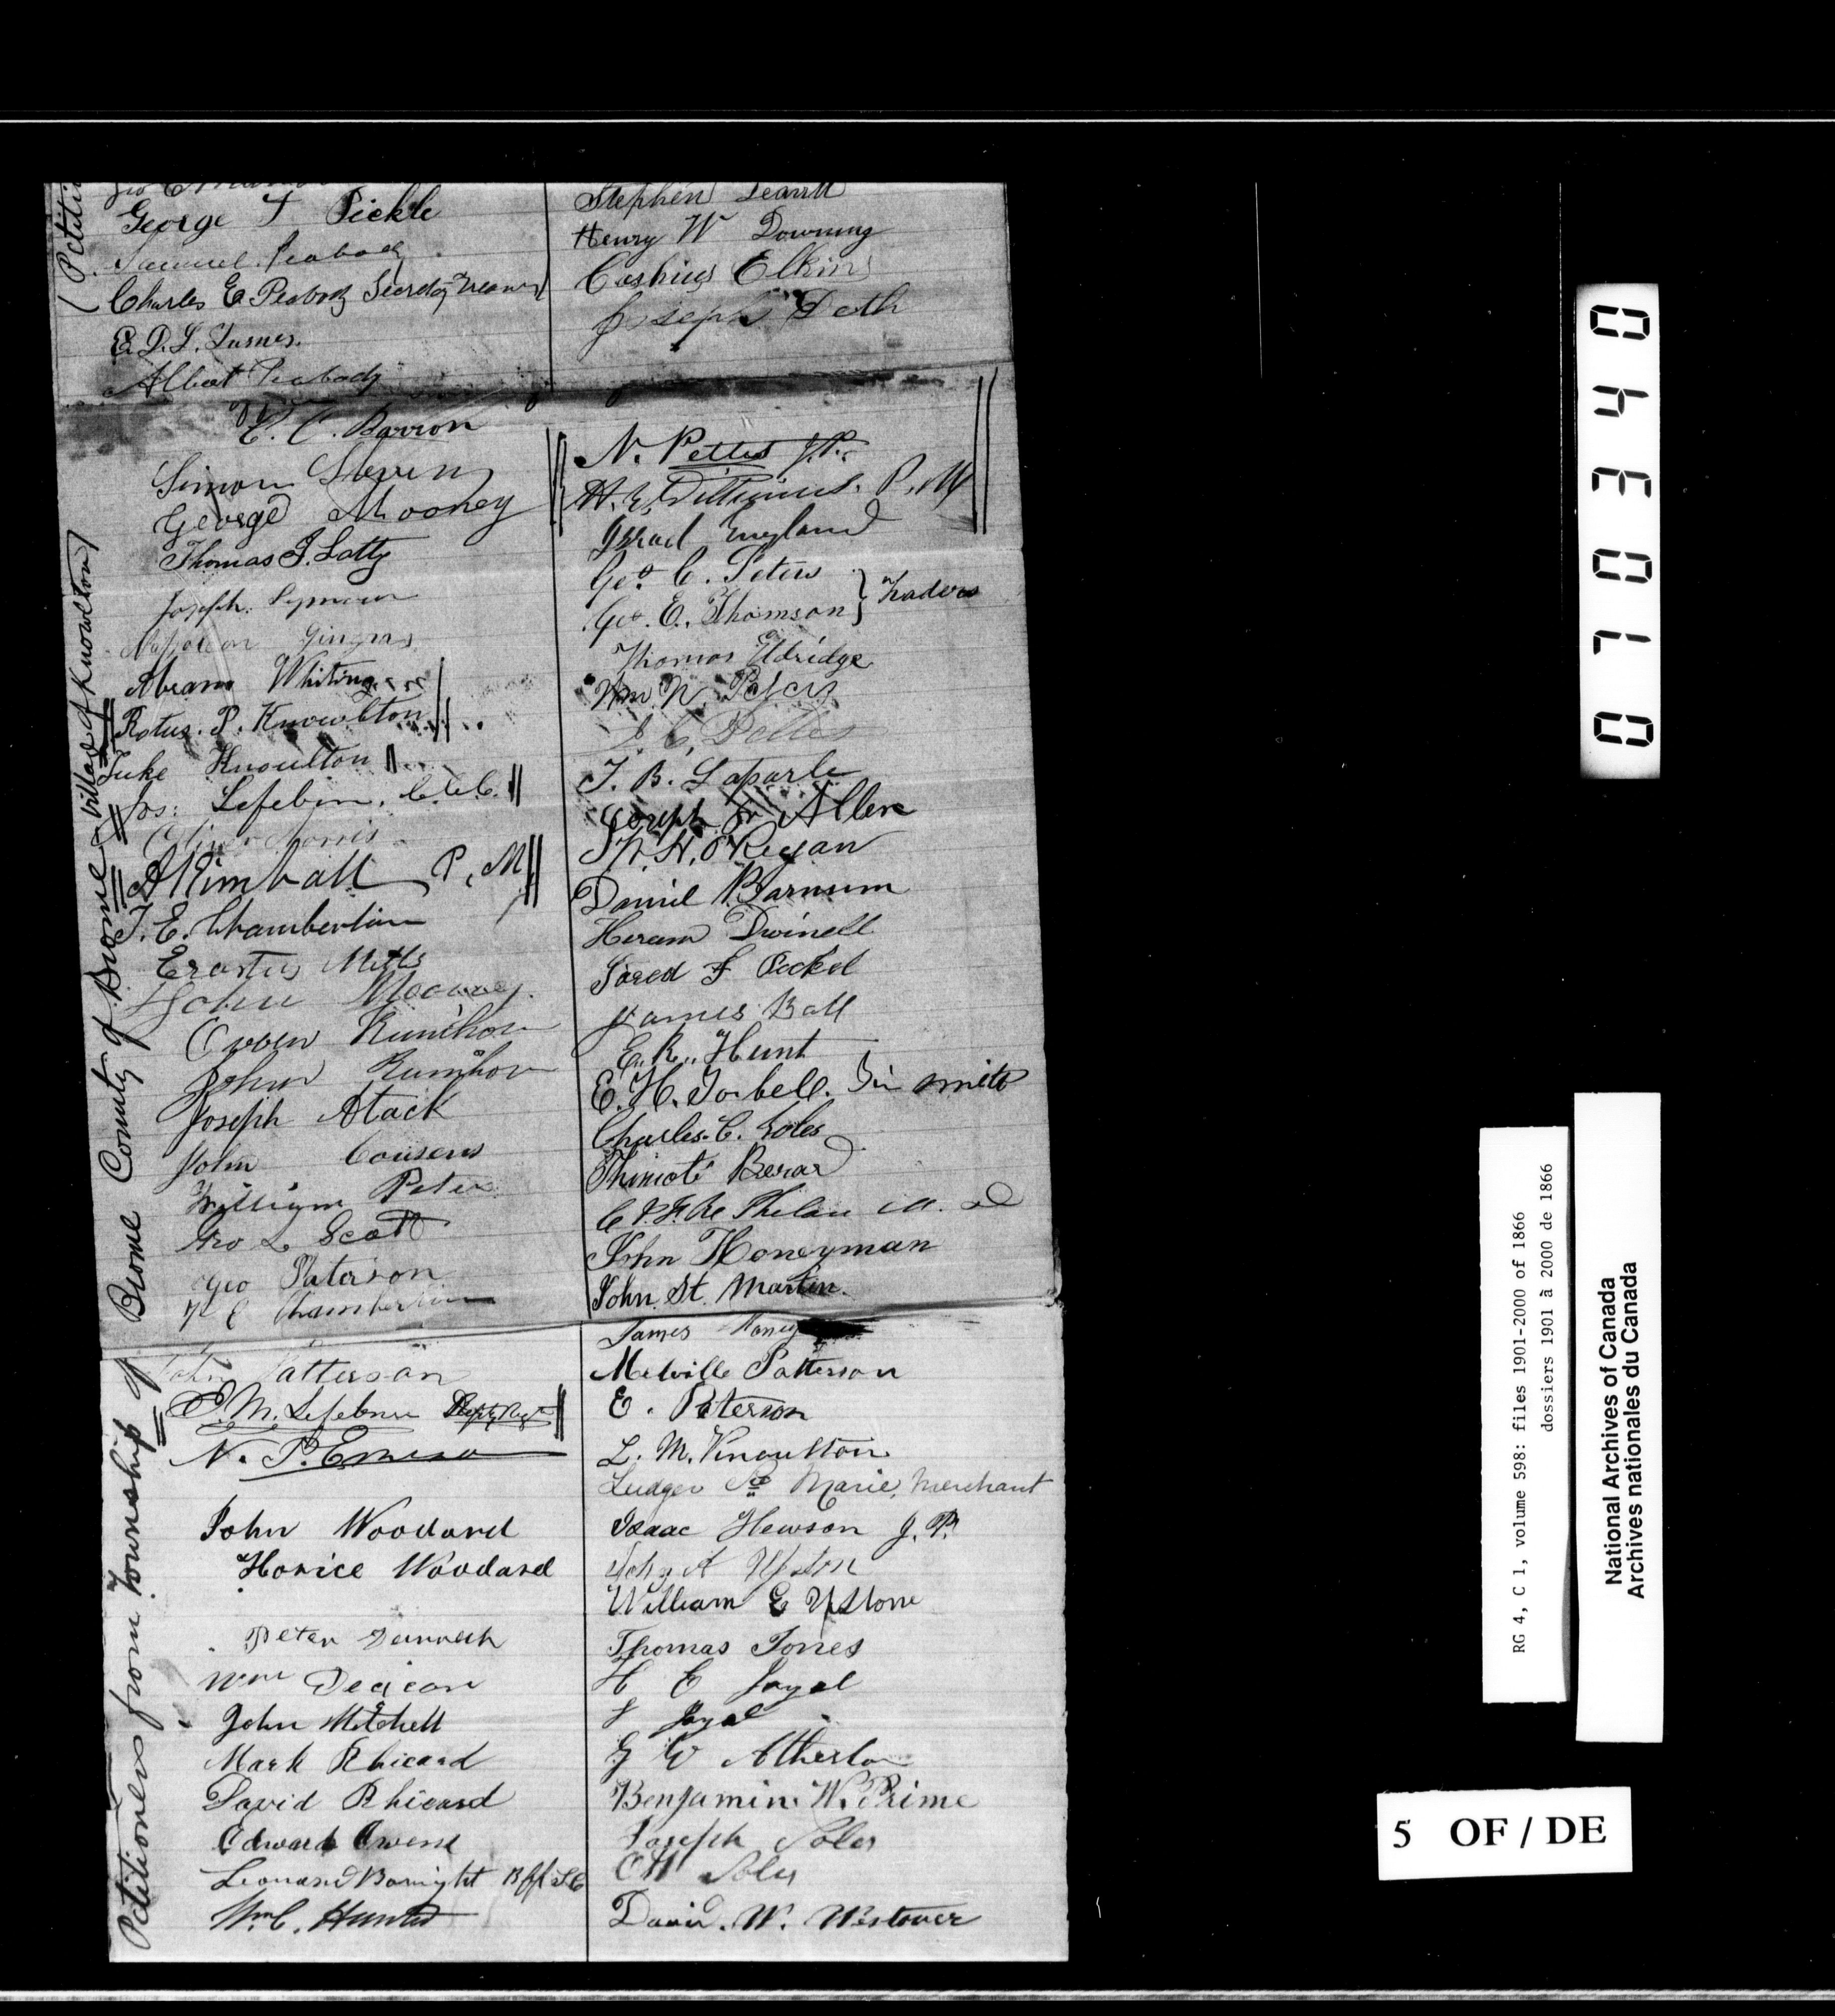 Petitioners from Township of Brome County of Brome & Village of Knowlton)
(Petiti
George F Pickle
Samuel Peabody
Charles E Peabody Secretary Treasurer
E. D. L. James.
Albert Peabody
E. C. Barron
Simon Steven
George Mooney
Thomas J. Latty
Joseph Seymour
Napoleon Gingras
Abram Whiting
Rotus. P. Knowlton
Luke Knoulton
Jos: Lefebvre, C.C.C.
Oliver Norris
A Kimball P. M
T. E. Chamberlin
Erastus Mills
John Mooney
Owen
John
Joseph Atack
John Cousens
William Peter
Geo L Scott
Geo Paterson
N C Chamberlin
John Patterson
P. M. Lefebvre Depty Regr
N. P. Emerson
John Woodard
Horice Woodard
Peter
Wm Deacon
John Mitchell
Mark Rhicard
David Rhicard
Edward Owens
Leonard Boright Bff S C
Wm C. Hunter
Stephen
Henry W Downing
Cashius Elkins
Joseph Doth
N. Pettes J.P.
H. E. Williams. P. M
Israel England
Geo. C. Peters
Geo. E. Thomson } Traders
Thomas Eldridge
Wm. N. Peters
J. C. Pettes
T. B. Laparle
Joseph Allen
W. H. O'Regan
Daniel Barnum
Heram Dwinell
Jared F Pickel
James Ball
E. R. Hunt
E. H. Tarbell. Tin smith
Charles. C. Soles
Thimoté Berard
C. P. F. Re Phelan M. D
John Honeyman
John St. Martin.
James Honey
Melville Patterson
E. Paterson
L. M. Knoulton
Ludger Ste Marie, Merchant
Isaac Hewson J. P.
John A Upton
William E Upstone
Thomas Jones
H E Joyal
F Joyal
G W Atherton
Benjamin W. Prime
Joseph Soles
O H Soles
David. W. Westover
070340
RG 4, C 1, volume 598: files 1901-2000 of 1866
dossiers 1901 à 2000 de 1866
National Archives of Canada
Archives nationales du Canada
5 OF / DE